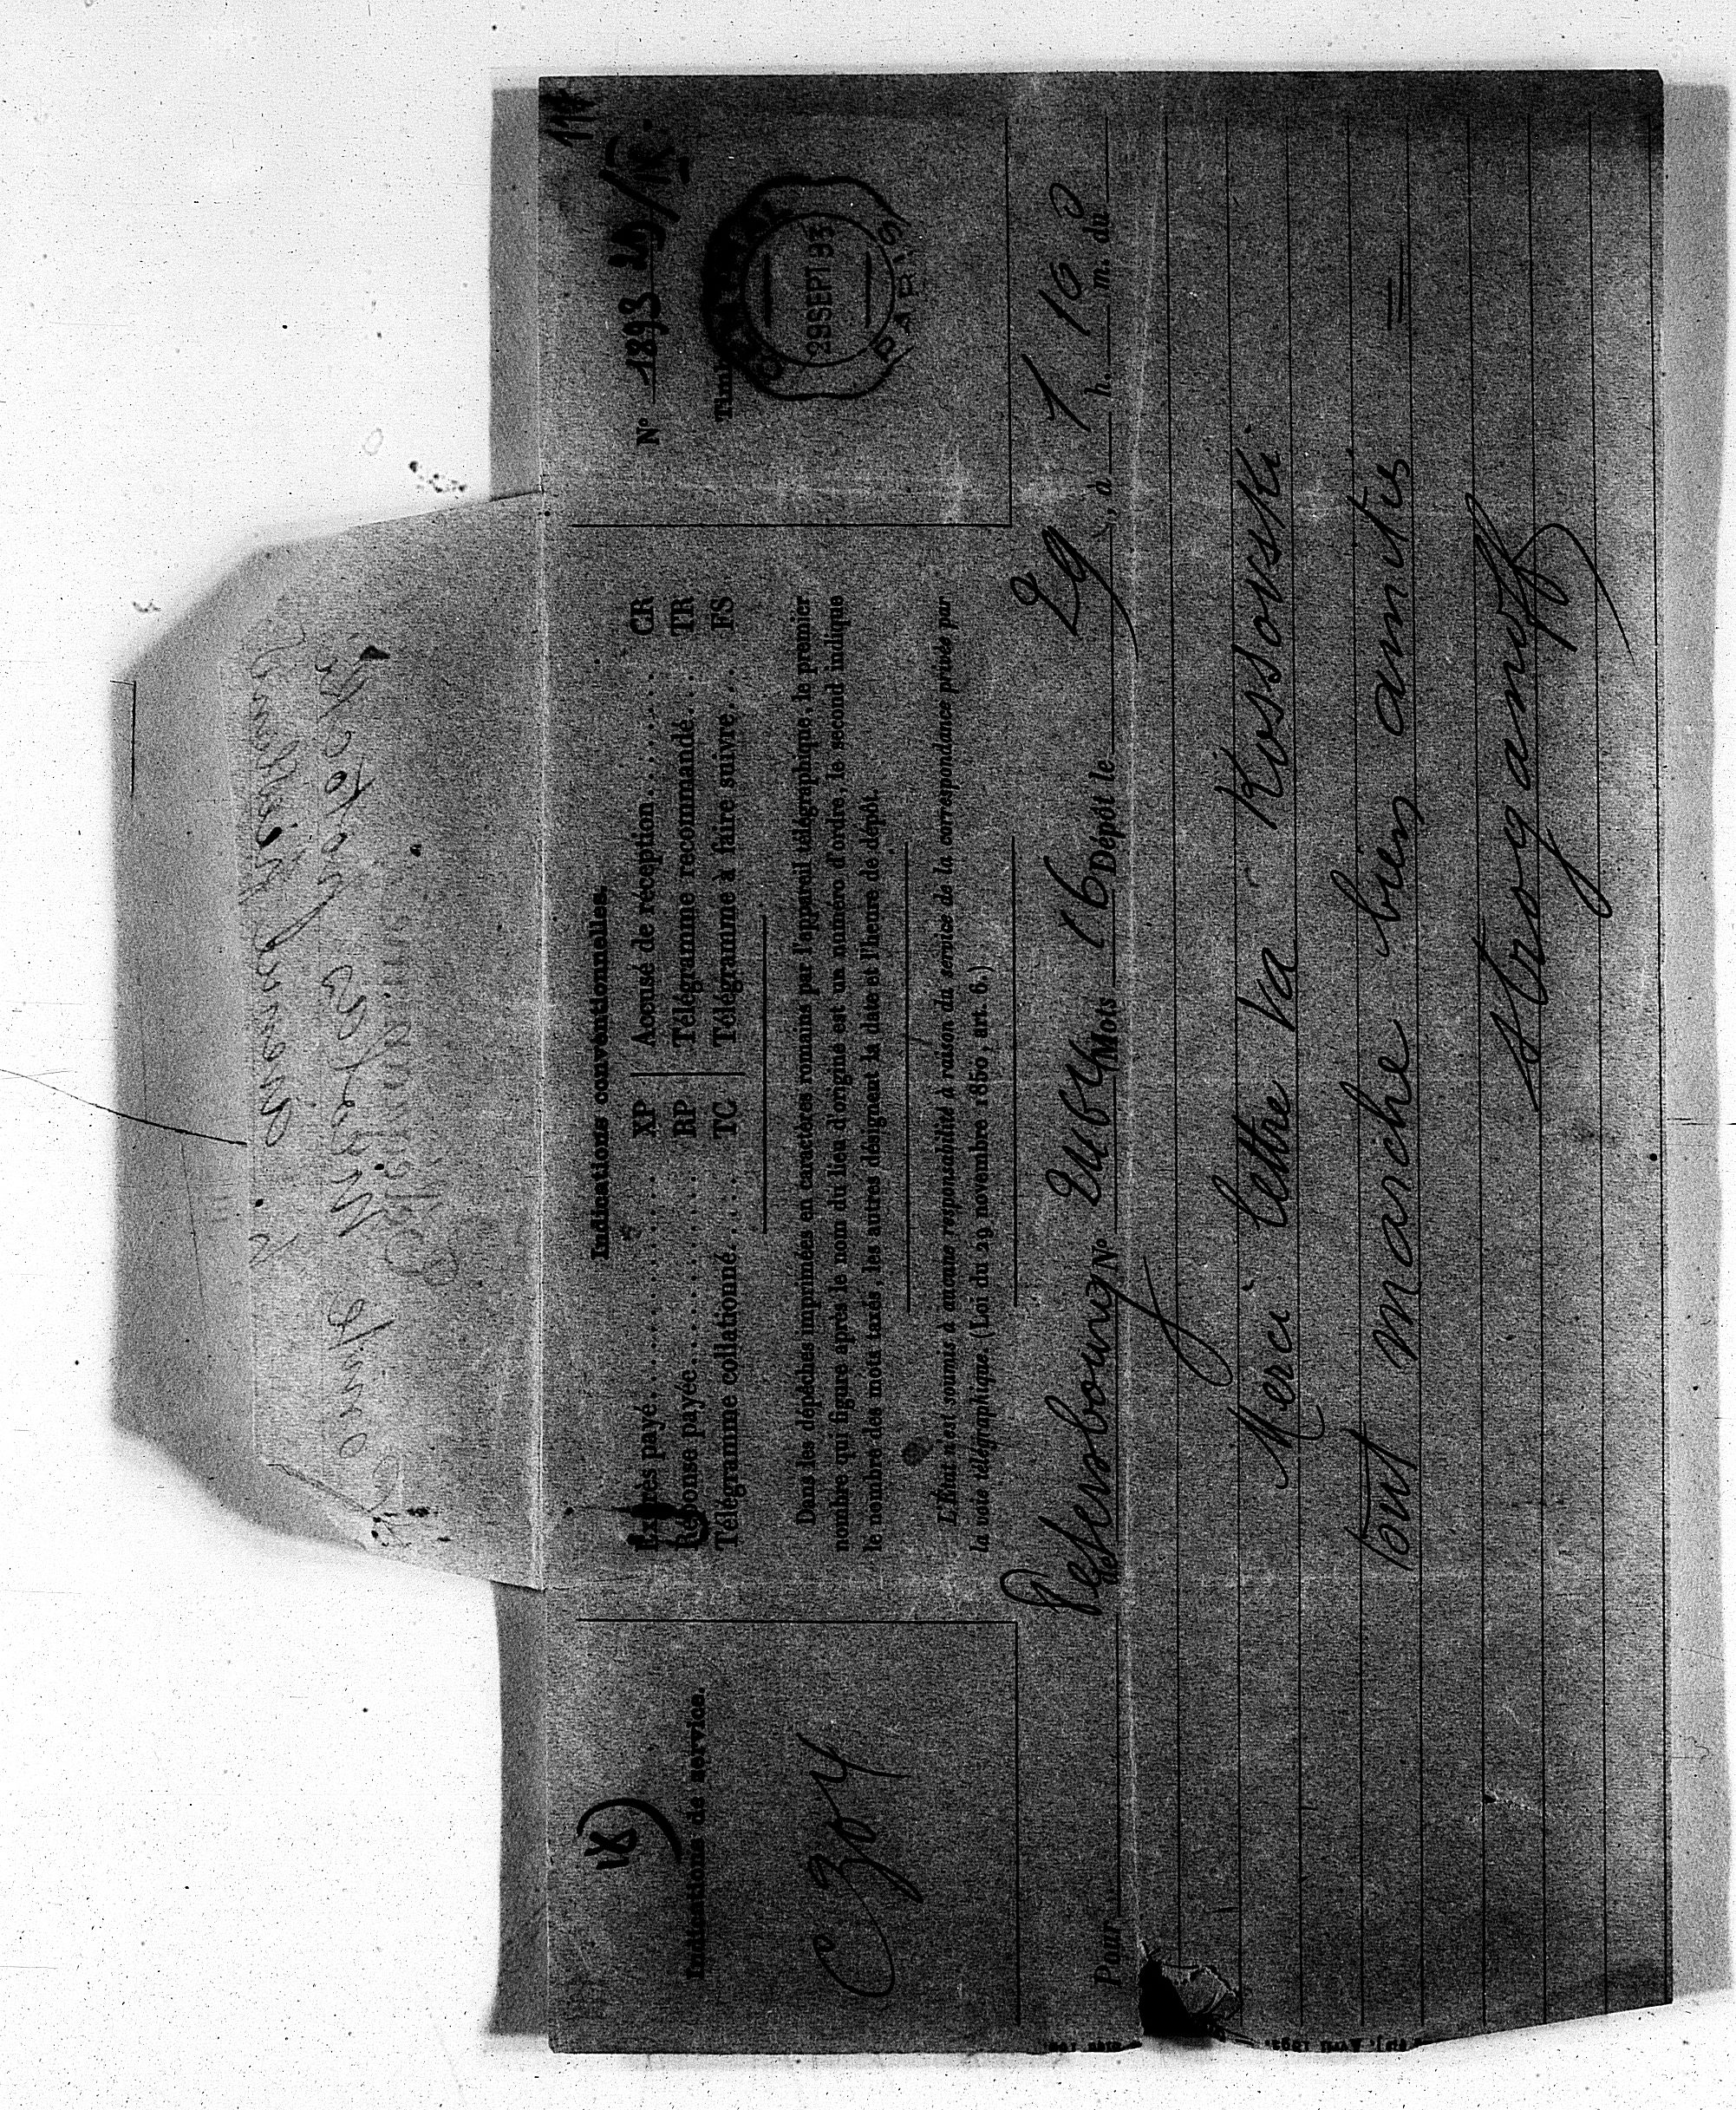 18)
Indications de service.
C304
Indications conventionnelles.
Exprès payé XP
Réponse payée RP
Télégramme collationné TC
Accusé de réception CR
Télégramme recommandé TR
Télégramme à faire suivre FS
Dans les dépêches imprimées en caractères romains par l'appareil télégraphique, le premier
nombre qui figure après le nom du lien d'origine est un numéro d'ordre, le second indique
le nombre des mots taxés, les autres désignent la date et l'heure de dépôt.
L'État n'est soumis à aucune responsabilité à raison du service de la correspondance privée par
la voie télégraphique. (Loi du 29 novembre 1850, art. 6.)
114
N° 1893 29/IX.
CENTRAL
29 SEPT 93
PARIS
Pour De Petersbourg N° Mots 16 Dépôt le 29, à 7 h. 10 m. du
Merci lettre va Kossovski
tout marche bien amitiés =
Stroganoff